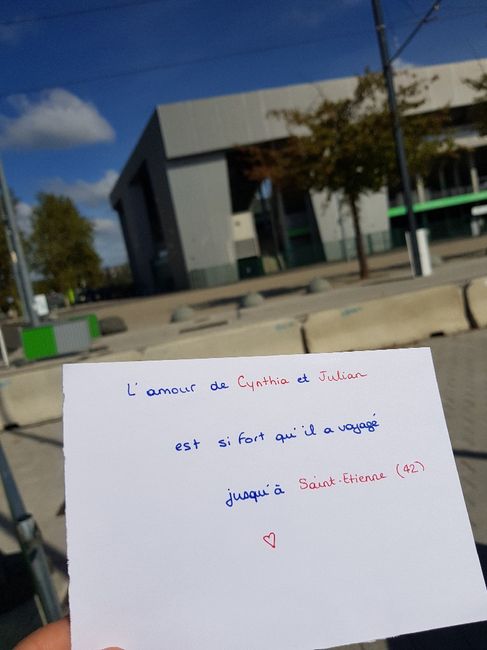 L'amour de Cynthia et Julian
est si fort qu'il a voyagé
jusqu'à Saint-Etienne (42)
♡